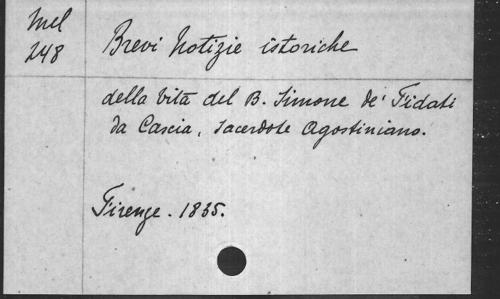 Mel
248
Brevi Notizie istoriche
della vita del B. Simone de' Fidati
da Cascia, Sacerdote Agostiniano.
Firenze. 1835.